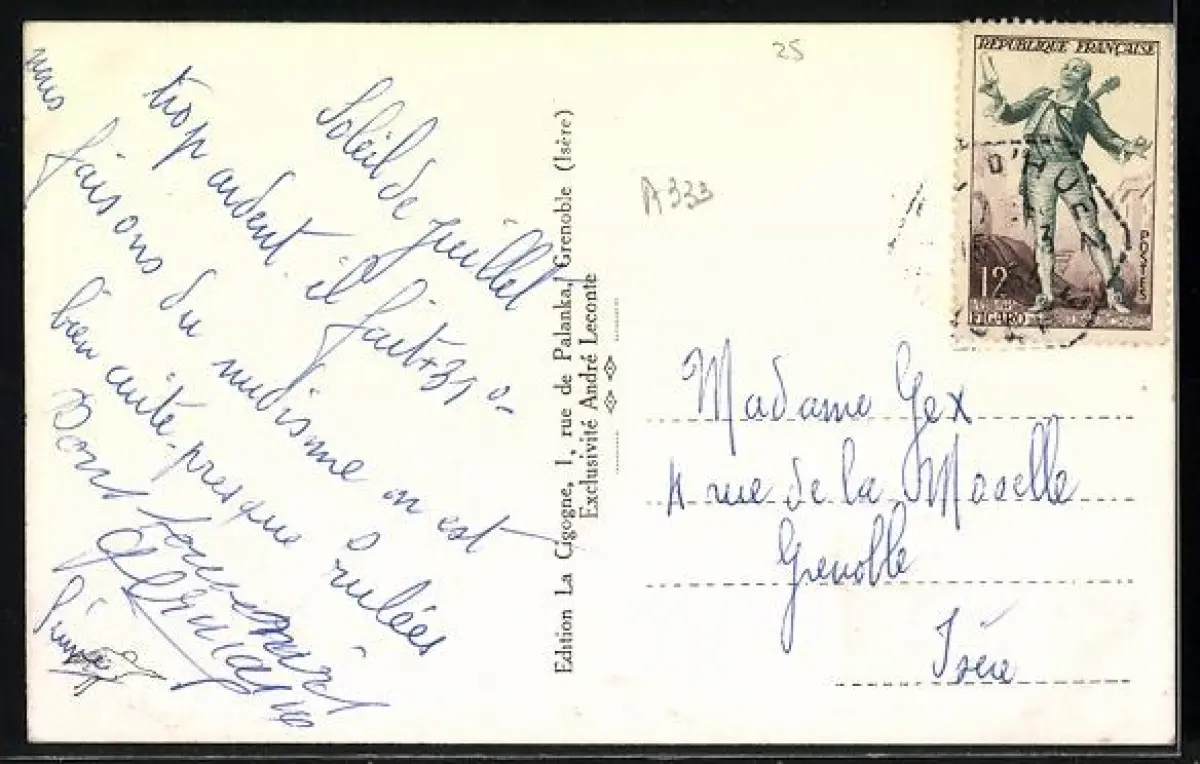 25
A 333
Soleil de juillet
trop ardent. il fait + 31°-
nous faisons du nudisme on est
bien cuite presque brulées
Bons Souvenirs
Edition La Cigogne, 1, rue de Palanka, Grenoble (Isère)
Exclusivité André Leconte
RÉPUBLIQUE FRANÇAISE
D'HUE
12F
POSTES
FIGARO
Madame Gex
4 rue de la Moselle
Grenoble
Isère